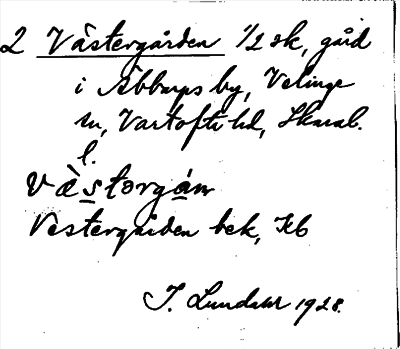 2 Västergården 1/2 sk, gård
i Åbbarps by, Velinge
sn, Vartofta hd, Skarab.
l.
Vestergården bek, Kb
J. Lundahl 1928.